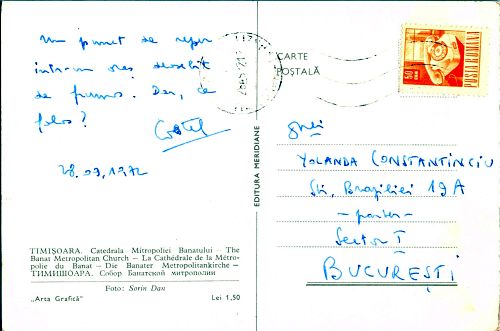 Un punct de reper
într-un oraș deosebit
de frumos. Dar, ce
folos?
Costel
28.09.1972
TIMIȘOARA. Catedrala Mitropoliei Banatului — The
Banat Metropolitan Church — La Cathédrale de la Métro-
polie du Banat — Die Banater Metropolitankirche —
ТИМИШОАРА. Собор Банатской митрополии
Foto: Sorin Dan
„Arta Grafică”
Lei 1,50
EDITURA MERIDIANE
CARTE
POȘTALĂ
POSTA ROMANA
YOLANDA CONSTANTINCIU
Str. Braziliei 19A
— parter —
Sector I
BUCUREȘTI